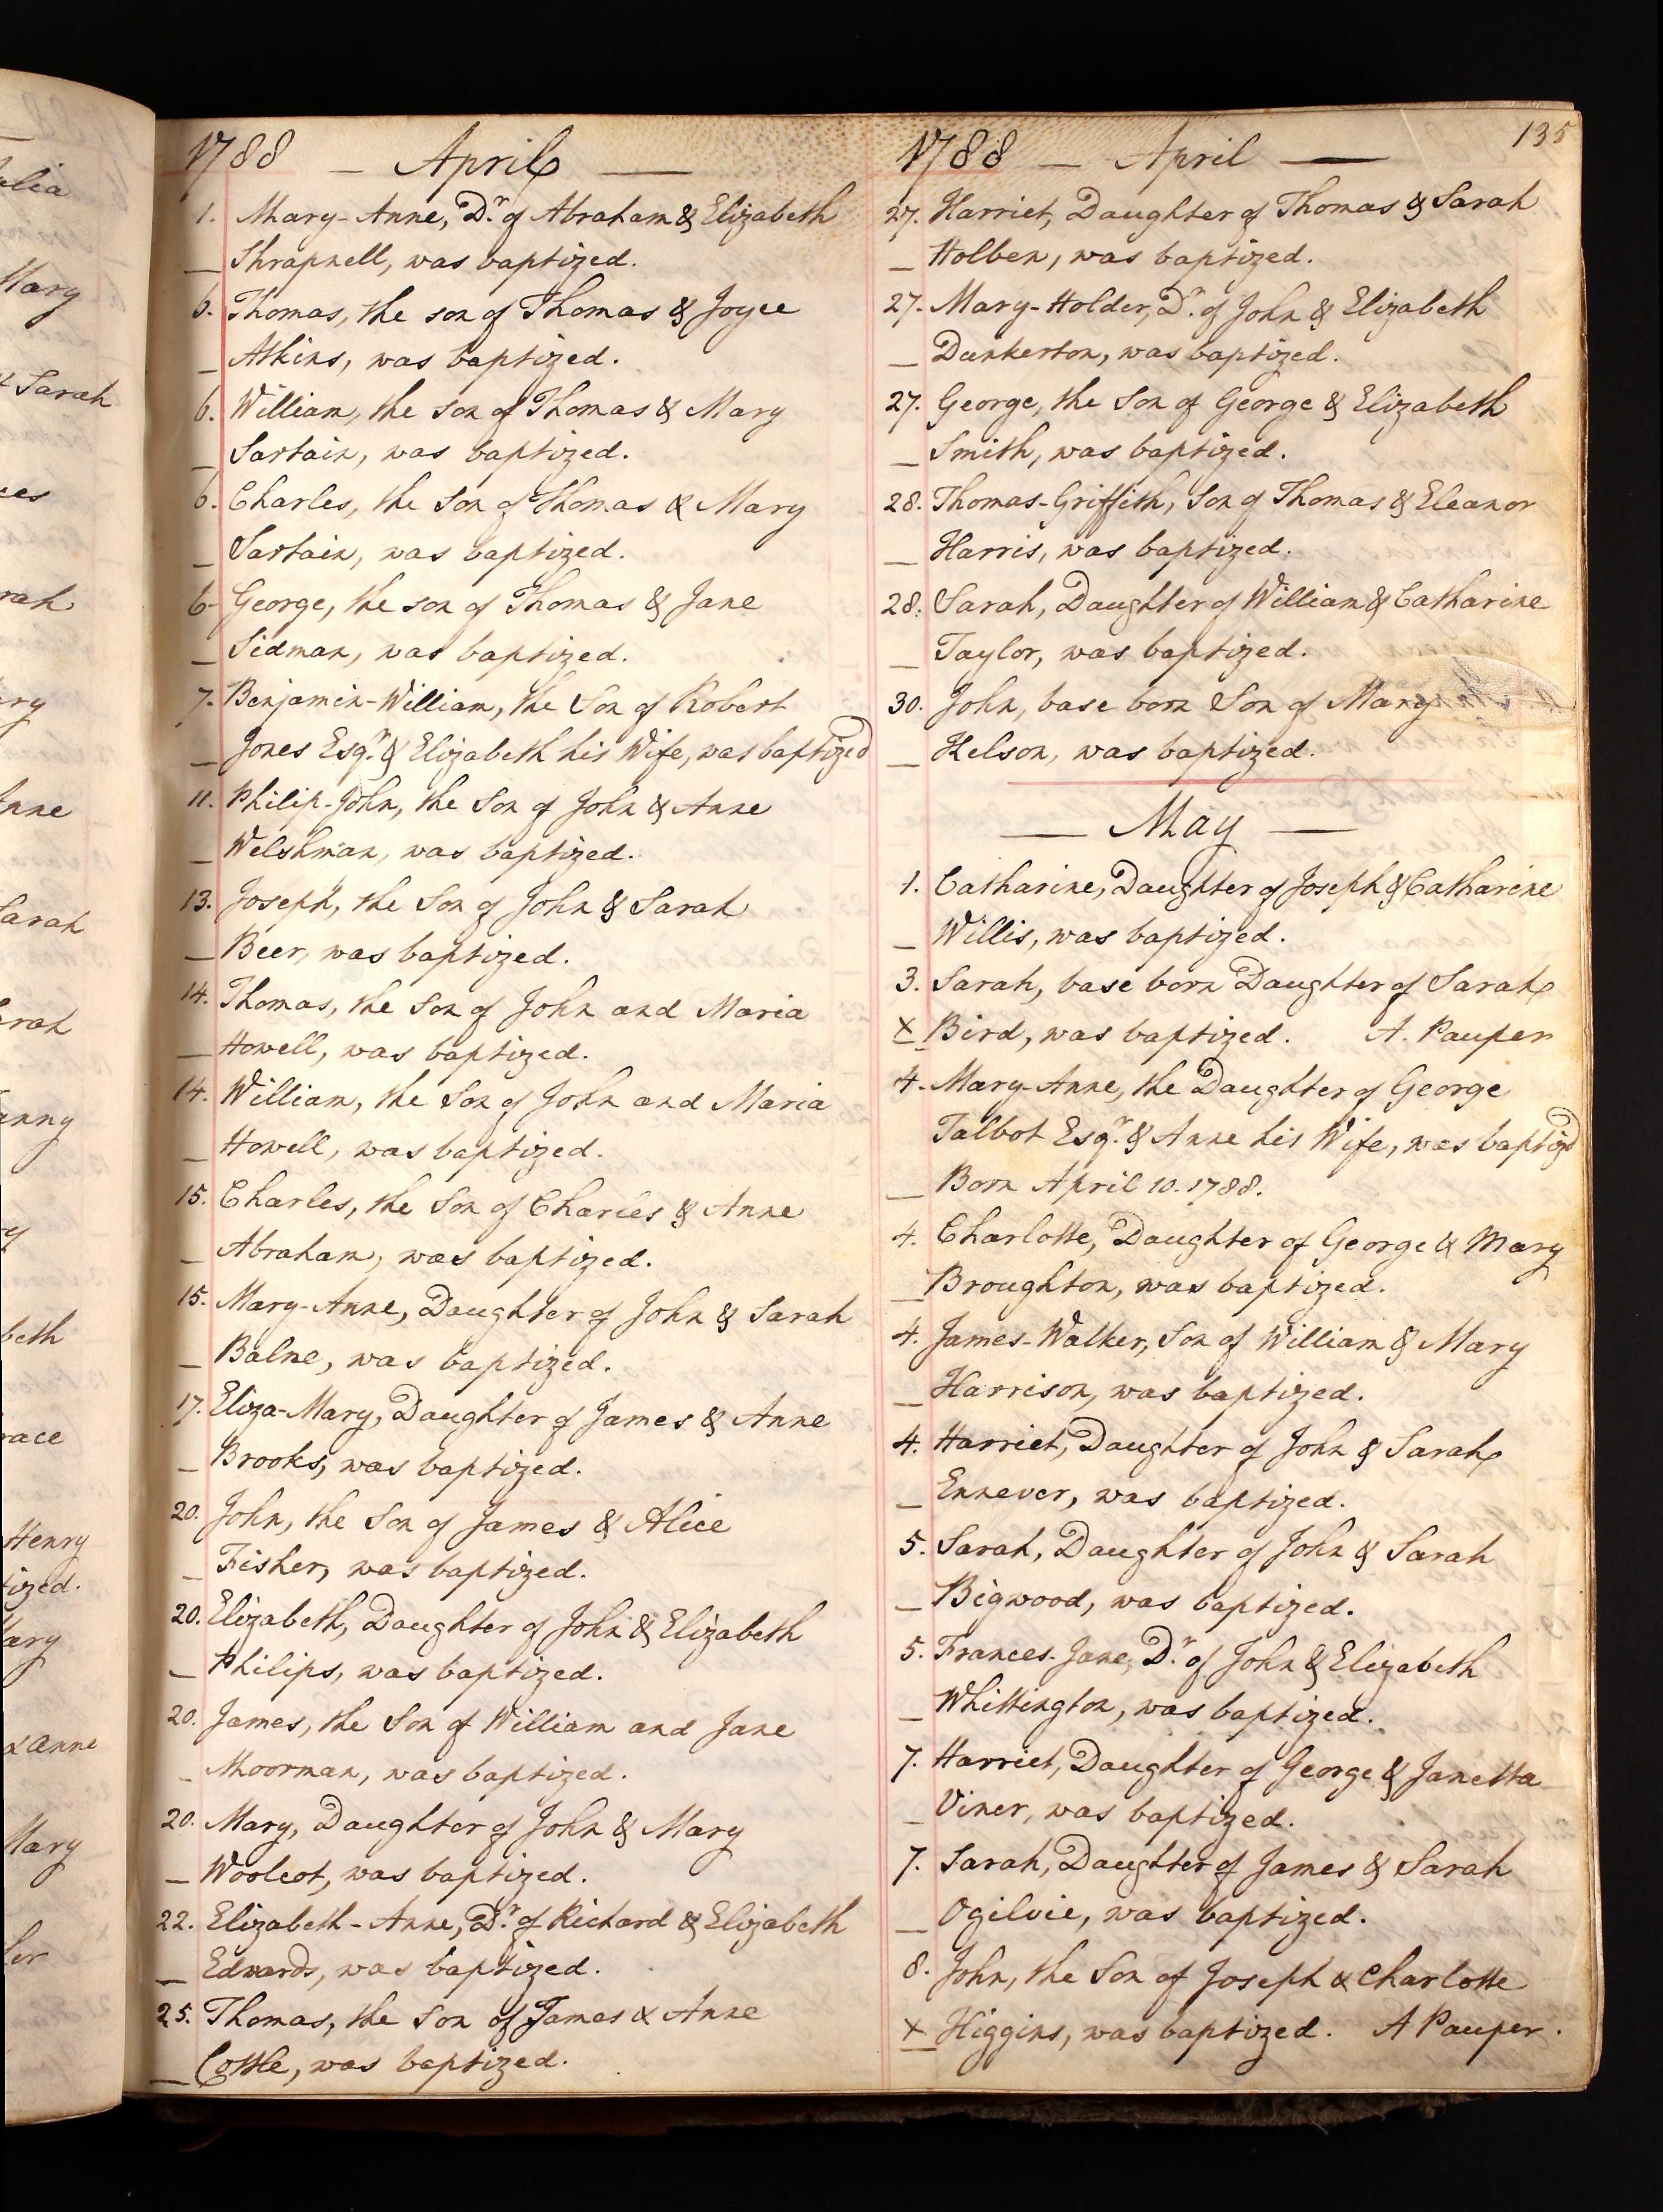 135
1788 — April —
1. Mary-Anne, Dr. of Abraham & Elizabeth
— Shrapnell, was baptized.
6. Thomas, the son of Thomas & Joyce
— Atkins, was baptized.
6. William, the Son of Thomas & Mary
— Sartain, was baptized.
6. Charles, the Son of Thomas & Mary
— Sartain, was baptized.
6. George, the son of Thomas & Jane
— Sidman, was baptized.
7. Benjamin-William, the Son of Robert
— Jones Esqr. & Elizabeth his Wife, was baptized
11. Philip-John, the Son of John & Anne
— Welshman, was baptized.
13. Joseph, the Son of John & Sarah
— Beer, was baptized.
14. Thomas, the Son of John and Maria
— Howell, was baptized.
14. William, the Son of John and Maria
— Howell, was baptized.
15. Charles, the Son of Charles & Anne
— Abraham, was baptized.
15. Mary-Anne, Daughter of John & Sarah
— Balne, was baptized.
17. Eliza-Mary, Daughter of James & Anne
— Brooks, was baptized.
20. John, the Son of James & Alice
— Fisher, was baptized.
20. Elizabeth, Daughter of John & Elizabeth
— Philips, was baptized.
20. James, the Son of William and Jane
— Moorman, was baptized.
20. Mary, Daughter of John & Mary
— Woolcot, was baptized.
22. Elizabeth-Anne, Dr. of Richard & Elizabeth
— Edwards, was baptized.
25. Thomas, the Son of James & Anne
— Cottle, was baptized.
1788 — April —
27. Harriet, Daughter of Thomas & Sarah
— Holben, was baptized.
27. Mary-Holder, Dr. of John & Elizabeth
— Dunkerton, was baptized.
27. George, the Son of George & Elizabeth
— Smith, was baptized.
28. Thomas-Griffith, Son of Thomas & Eleanor
— Harris, was baptized.
28. Sarah, Daughter of William & Catharine
— Taylor, was baptized.
30. John, base born Son of Mary
— Kelson, was baptized.
— May —
1. Catharine, Daughter of Joseph & Catharine
— Willis, was baptized.
3. Sarah, base born Daughter of Sarah
× Bird, was baptized. A. Pauper
4. Mary-Anne, the Daughter of George
Talbot Esqr. & Anne his Wife, was baptizd
— Born April 10. 1788.
4. Charlotte, Daughter of George & Mary
— Broughton, was baptized.
4. James-Walker, Son of William & Mary
— Harrison, was baptized.
4. Harriet, Daughter of John & Sarah
— Ennever, was baptized.
5. Sarah, Daughter of John & Sarah
— Bigwood, was baptized.
5. Frances-Jane, Dr. of John & Elizabeth
— Whittington, was baptized.
7. Harriet, Daughter of George & Janetta
— Viner, was baptized.
7. Sarah, Daughter of James & Sarah
— Ogilvie, was baptized.
8. John, the Son of Joseph & Charlotte
× Higgins, was baptized. A Pauper.